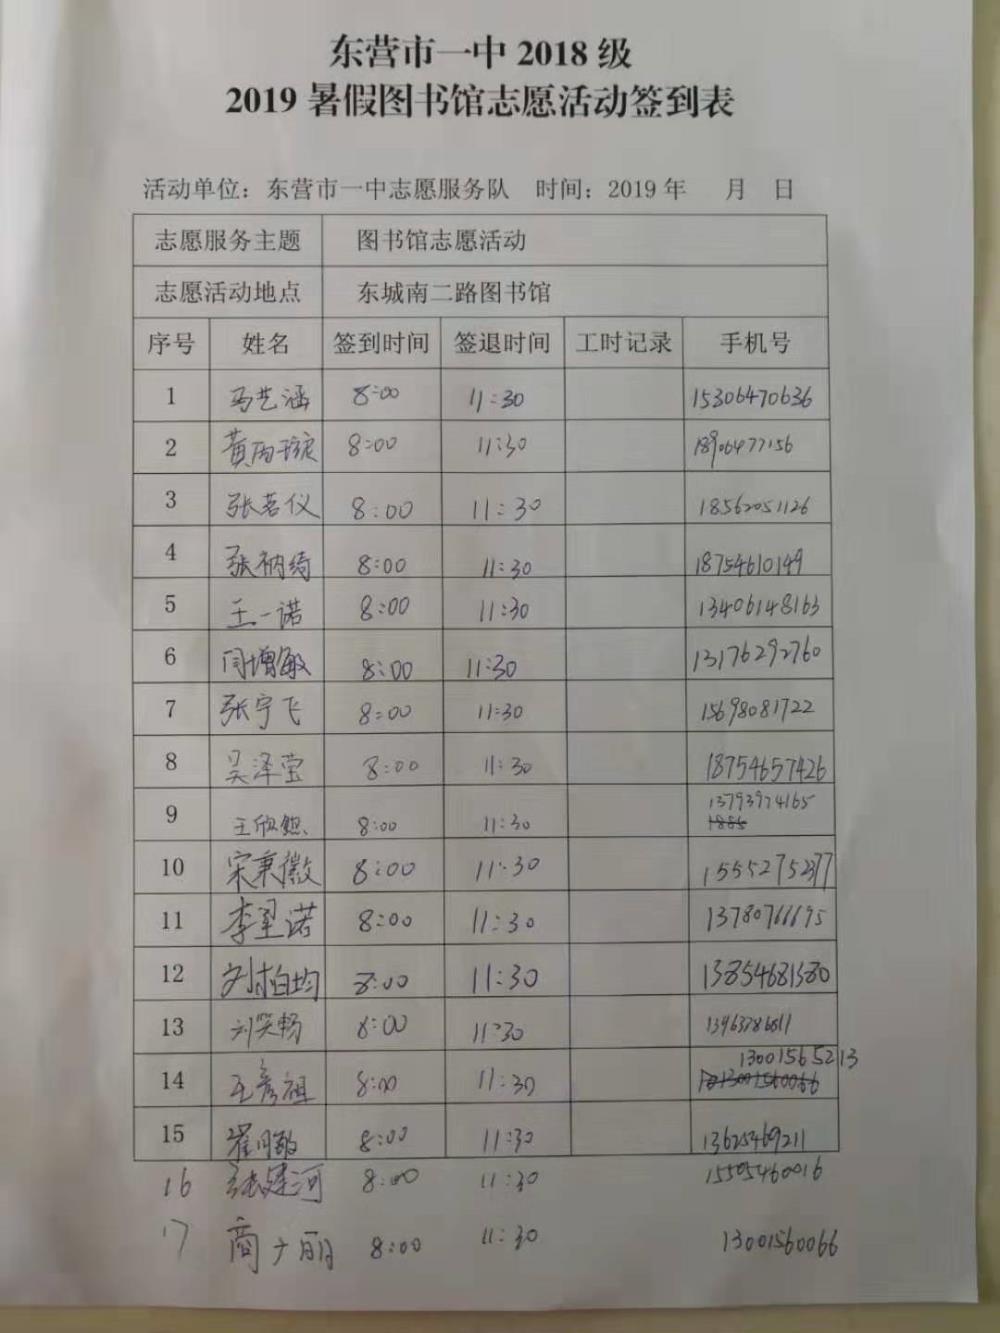 东营市一中 2018 级
2019 暑假图书馆志愿活动签到表
活动单位：东营市一中志愿服务队 时间：2019 年 月 日
志愿服务主题 图书馆志愿活动
志愿活动地点 东城南二路图书馆
序号 姓名 签到时间 签退时间 工时记录 手机号
1 马艺涵 8:00 11:30 15306470636
2 8:00 11:30 18906477156
3 张茗仪 8:00 11:30 18562051126
4 张衲绮 8:00 11:30 18754610149
5 王一诺 8:00 11:30 13406148163
6 闫增敏 8:00 11:30 13176292760
7 张宇飞 8:00 11:30 15698081722
8 吴泽莹 8:00 11:30 18754657426
9 8:00 11:30 13793974165
10 宋秉徽 8:00 11:30 15552752377
11 李翌诺 8:00 11:30 13780766695
12 刘柏均 8:00 11:30 13854681380
13 刘笑畅 8:00 11:30
14 王彦祖 8:00 11:30 13001565213
15 崔月敏 8:00 11:30 13625469211
16 张建河 8:00 11:30 15505460016
17 商广丽 8:00 11:30 13001560066